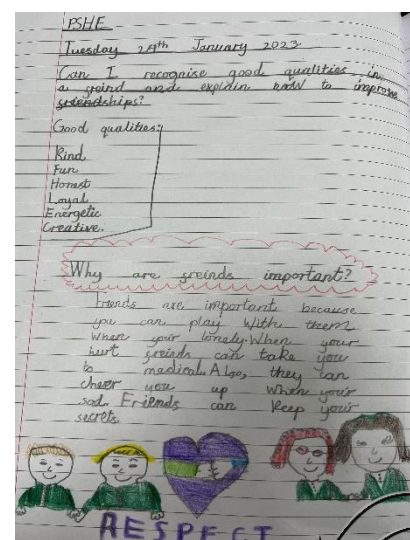 PSHE
Tuesday 24th January 2023.
Can I recognise good qualities in
a greind and explain how to improve
griendships?
Good qualities:
Kind
Fun
Honest
Loyal
Energetic
Creative.
Why are greinds important?
Friends are important because
you can play with them
when your lonely. When your
hurt greieds can take you
to medical. Also, they can
cheer you up when your
sad. Friends can keep your
secrets.
RESPECT